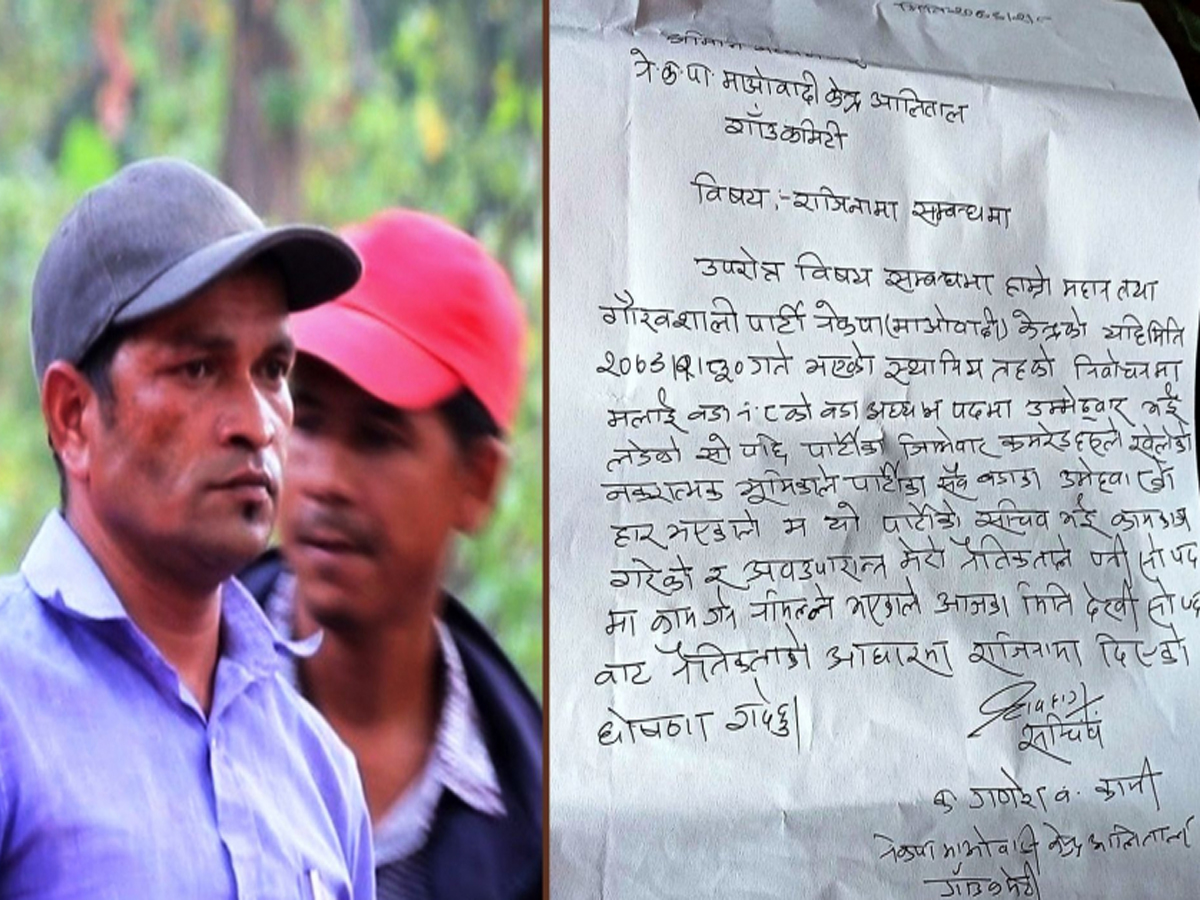 ने.क.पा. माओवादी केन्द्र आलिताल
गाँउ कमिटी
विषय :- राजिनामा सम्बन्धमा
उपरोक्त विषय सम्बन्धमा हाम्रो महान तथा
गौरवशाली पार्टी नेकपा (माओवादी) केन्द्रको यहि मिति
गते भएको स्थानिय तहको निर्वाचनमा
मलाई वडा नं ८ को वडा अध्यक्ष पदमा उम्मेदवार भई
लडेको सो पछि पार्टीका जिम्मेवार कमरेडहरुले खेलेको
नकरात्मक भूमिकाले पार्टीका सबै वडाका
हार भएकाले म यो पार्टीको सचिव भई कामकाज
गरेको र अवउपरान्त मेरो नैतिकताले पनी सो पद
मा काम गर्न नमिल्ने भएकाले आजका मिति देखी सो पद
वाट नैतिकताको आधारमा राजिनामा दिएको
घोषणा गर्दछु।
सचिव
क. गणेश व. कामी
नेकपा माओवादी केन्द्र आलिताल
गाँउ कमिटी